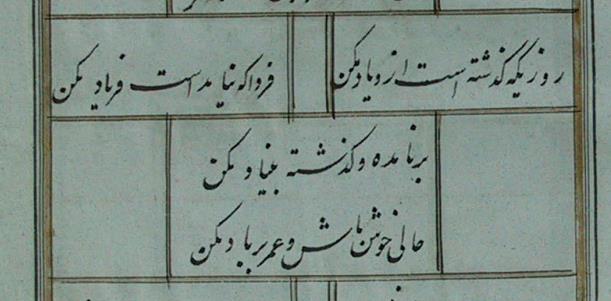 روزیکه گذشته است ازو یاد مکن
فردا که نیامدست فریاد مکن
برنامده و گذشته بنیاد مکن
حالی خوش باش و عمر برباد مکن